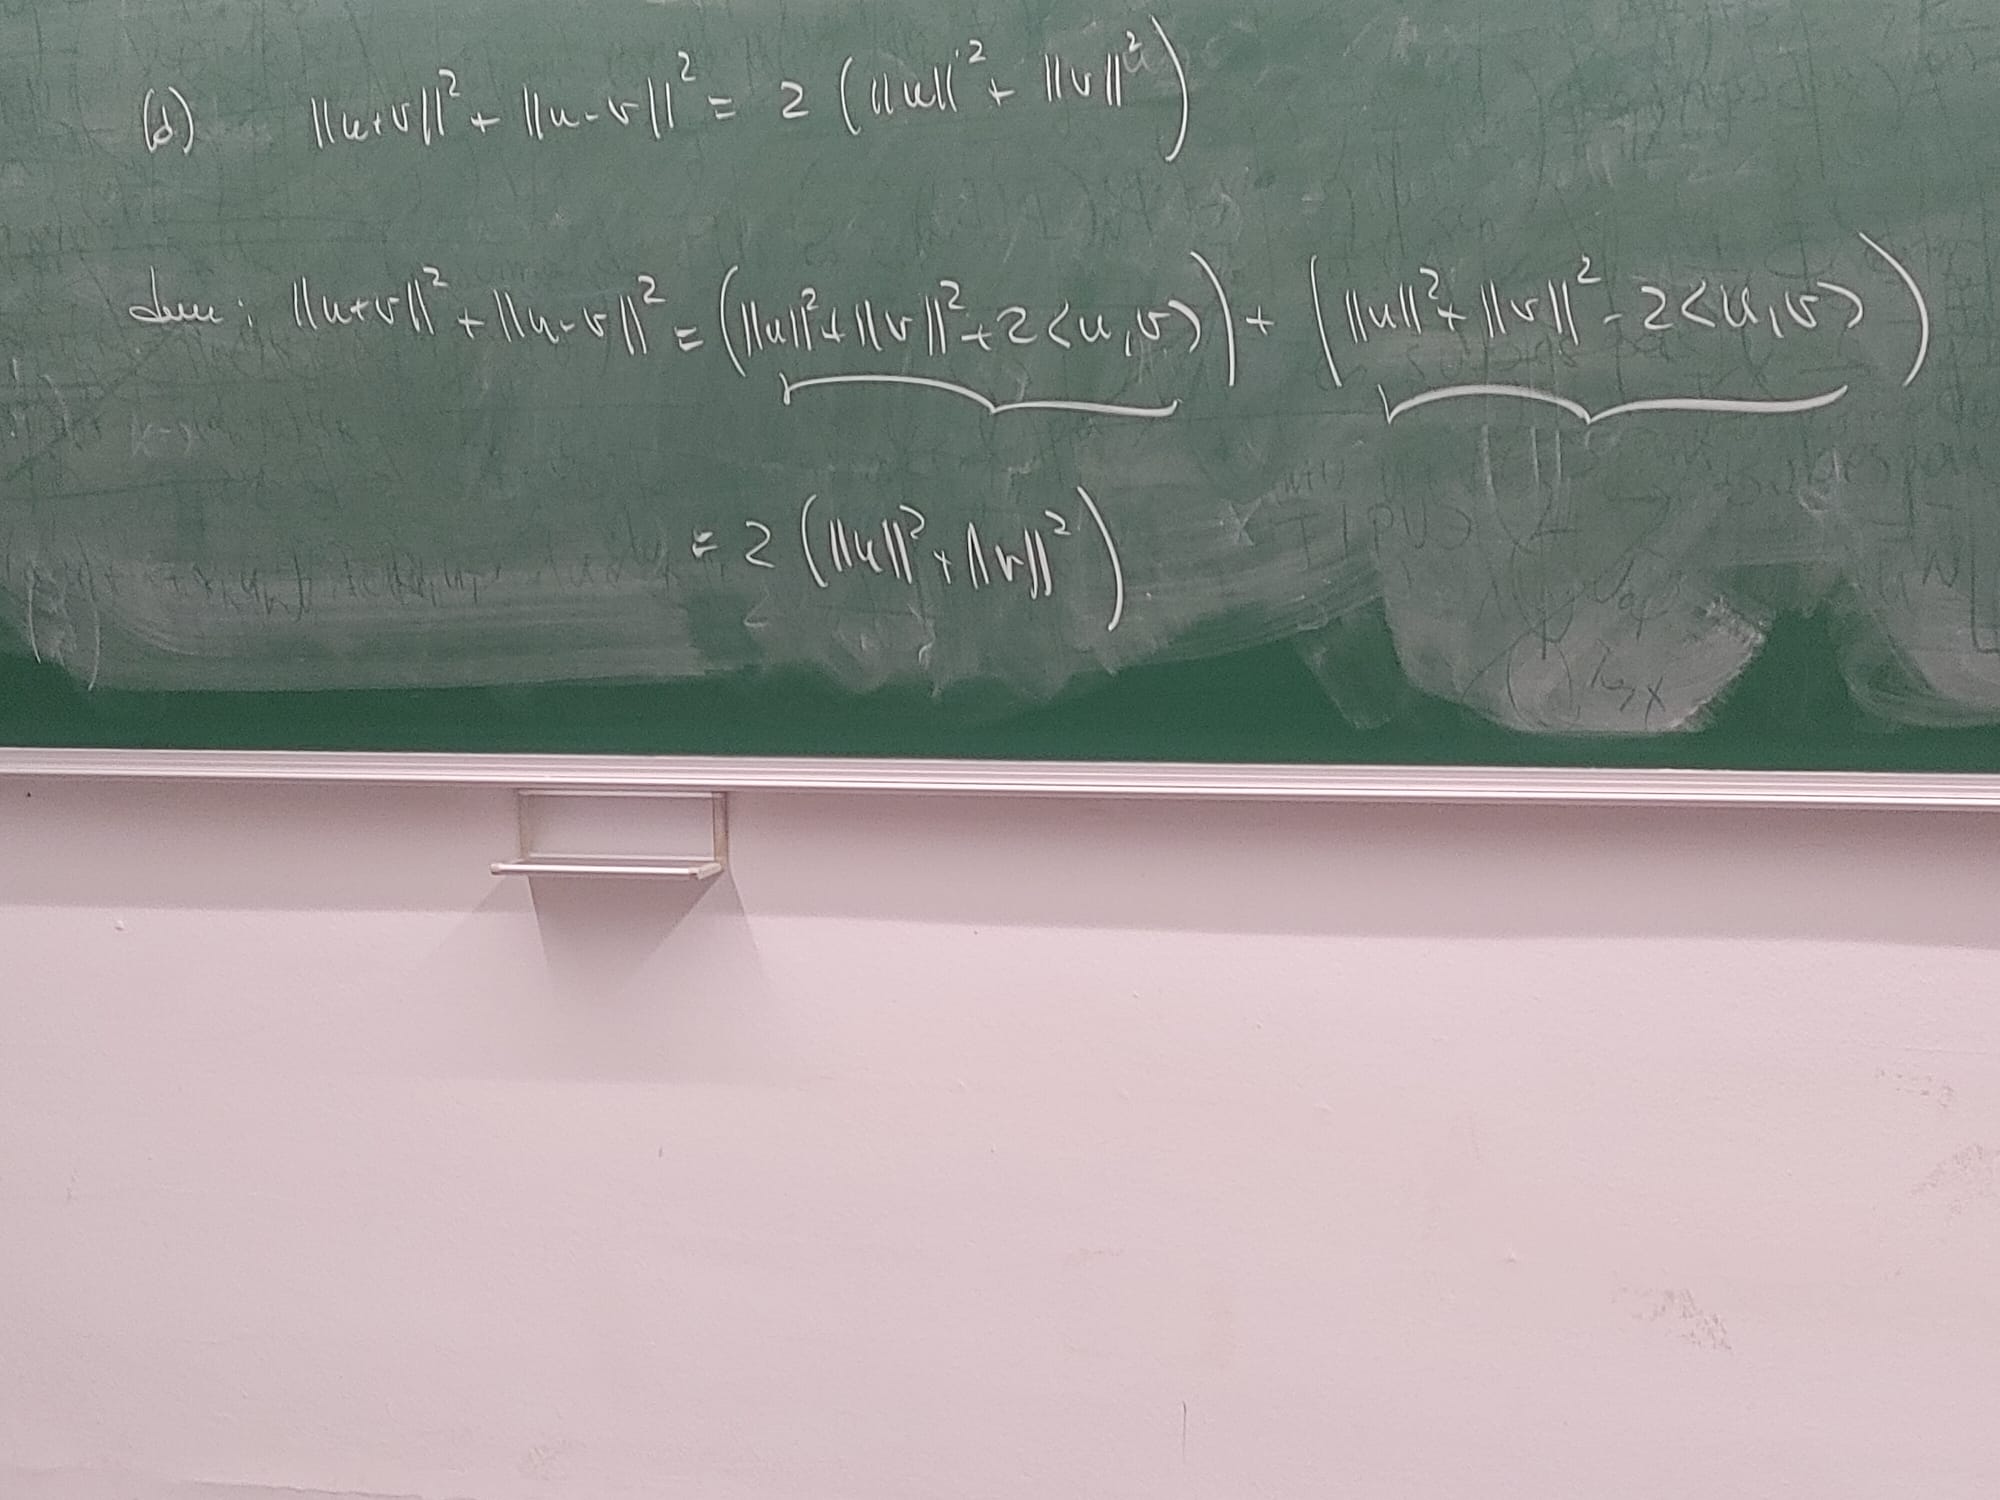 (d) ||u+v||² + ||u-v||² = 2 (||u||² + ||v||²)
dem: ||u+v||² + ||u-v||² = (||u||² + ||v||² + 2<u,v>) + (||u||² + ||v||² - 2<u,v>)
= 2 (||u||² + ||v||²)